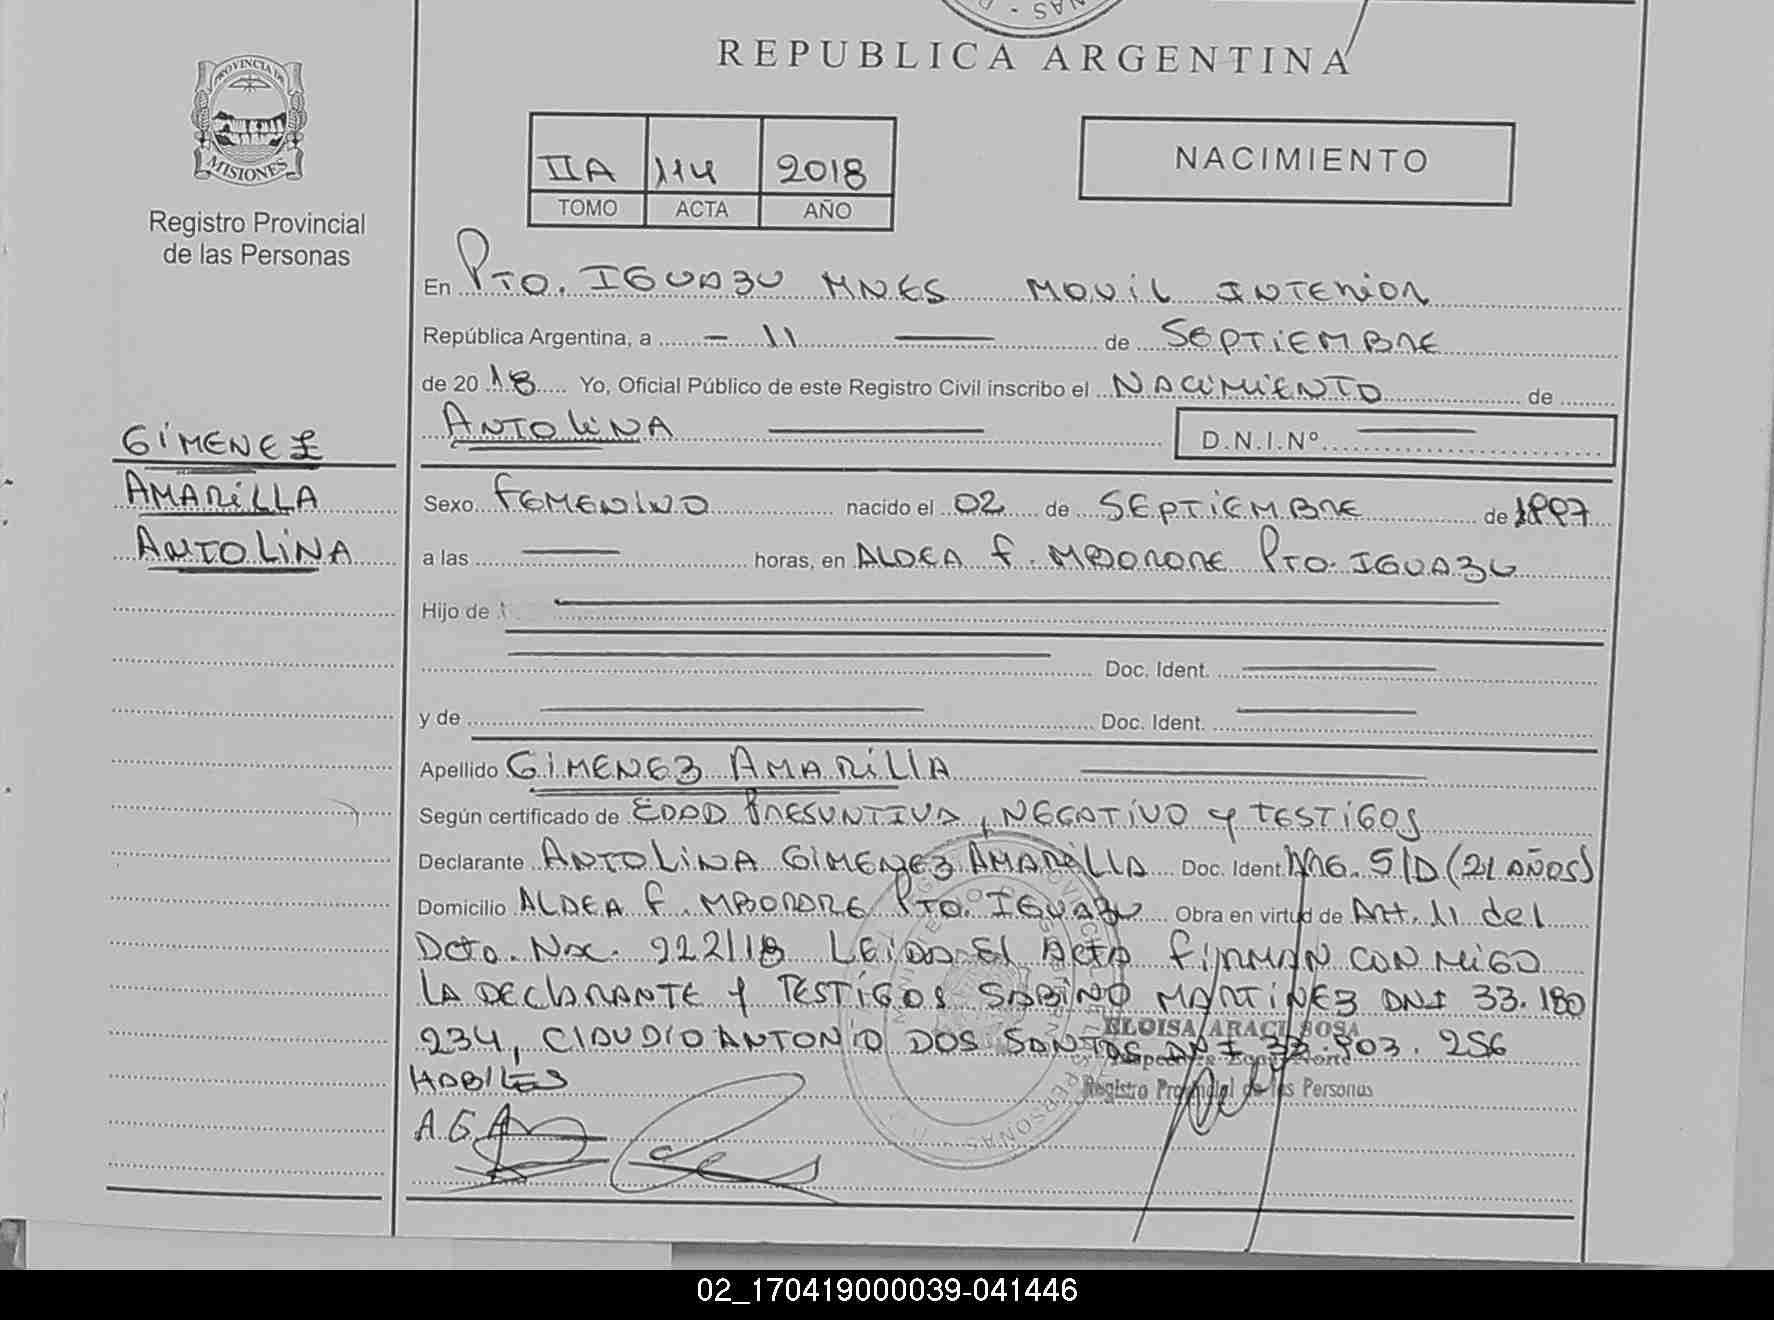 REPUBLICA ARGENTINA
PROVINCIA DE
MISIONES
Registro Provincial
de las Personas
IIA 114 2018
TOMO ACTA AÑO
NACIMIENTO
En Pto. IGUAZU MNES MOVIL INTERIOR
República Argentina, a - 11 de SEPTIEMBRE
de 20 18 Yo, Oficial Público de este Registro Civil inscribo el NACIMIENTO de
ANTOLINA D.N.I.Nº
GIMENEZ
AMARILLA
ANTOLINA
Sexo FEMENINO nacido el 02 de SEPTIEMBRE de 1997
a las horas, en ALDEA F. MBORORE Pto. IGUAZU
Hijo de
Doc. Ident.
y de Doc. Ident.
Apellido GIMENEZ AMARILLA
Según certificado de EDAD PRESUNTIVA, NEGATIVO y TESTIGOS
Declarante ANTOLINA GIMENEZ AMARILLA Doc. Ident. ARG. S/D (21 AÑOS)
Domicilio ALDEA F. MBORORE Pto. IGUAZU Obra en virtud de Art. 11 del
Dcto. Nac. 922/18 LEIDA El ACTA FIRMAN CON MIGO
LA DECLARANTE y TESTIGOS SABINO MARTINEZ DNI 33.180
234, CLAUDIO ANTONIO DOS SANTOS DNI 903.256
HABILES
ELOISA ARACI SOSA
Registro Provincial de las Personas
A.G.A
02_170419000039-041446